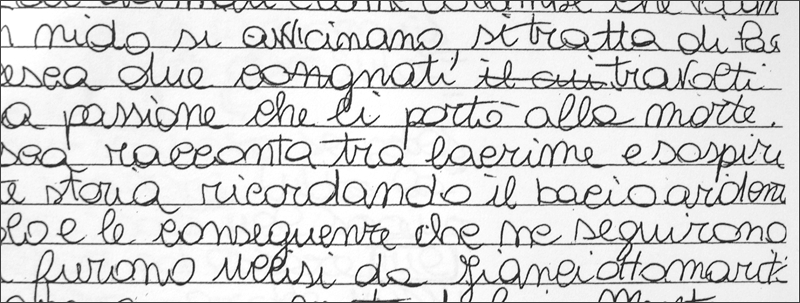 nido si avvicinano, si tratta di
due congnati, il cui travolti
a passione che li portò alla morte.
racconta tra lacrime e sospiri
storia ricordando il bacio
e le conseguenze che ne seguirono
furono uccisi da